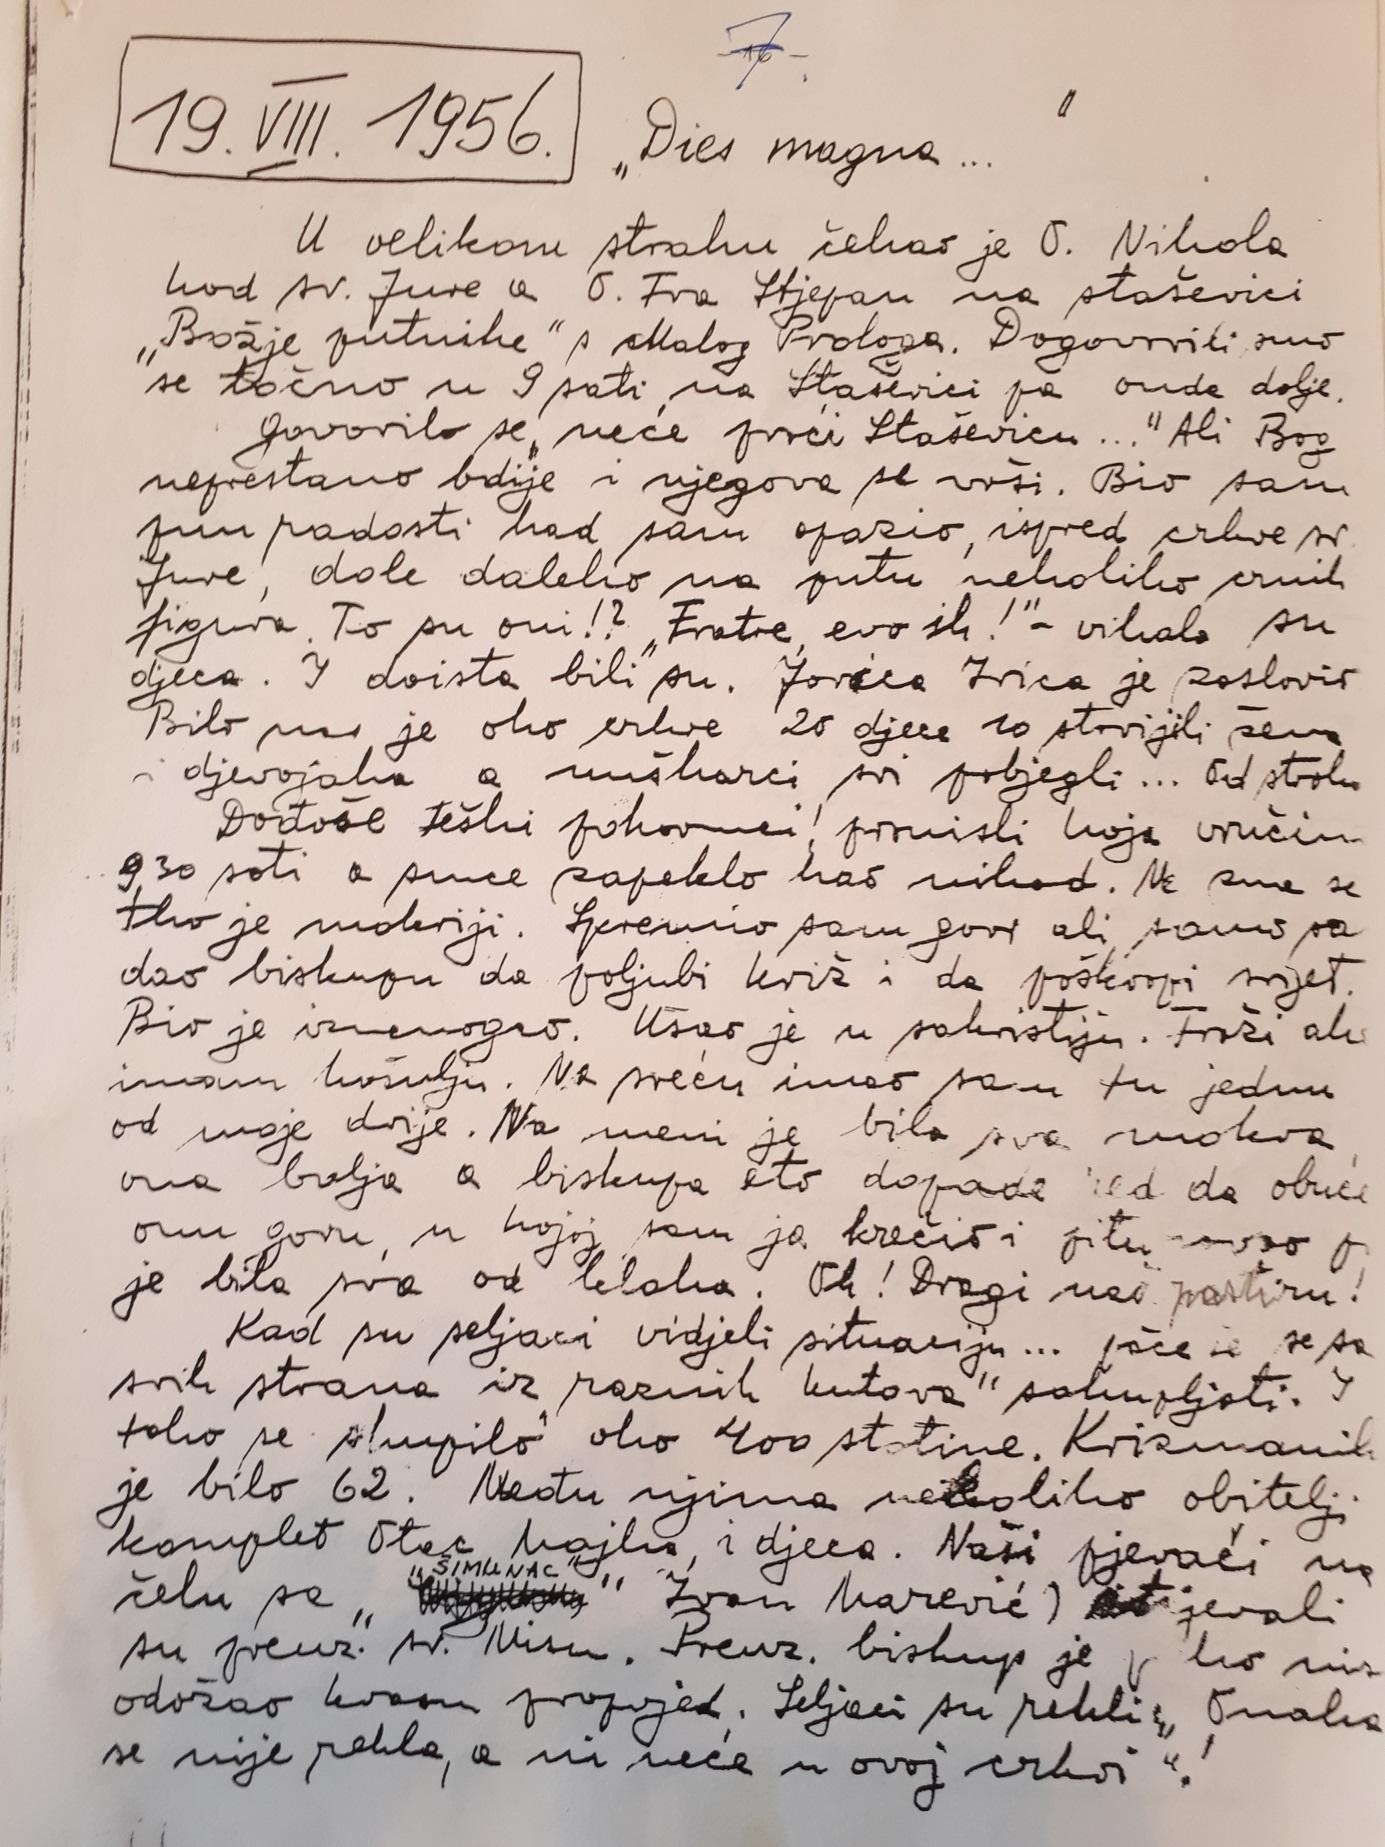 7
19. VIII. 1956. „Dies magna..."
U velikom strahu čekao je O. Nikola
kod sv. Jure a O. Fra Stjepan na staševici
„Božje putnike" s Malog Prologa. Dogovorili smo
se točno u 9 sati na Staševici pa onda dolje.
Govorilo se „neće proći Staševicu..." Ali Bog
neprestano bdije i njegova se vrši. Bio sam
pun radosti kad sam opazio, ispred crkve sv.
Jure, dole daleko na putu nekoliko crnih
figura. To su oni!? „Fratre, evo ih!" - vikala su
djeca. I doista bili su. Jovica Irica je zaslovio
Bilo nas je oko crkve 20 djece 10 starijih žena
i djevojaka a muškarci svi pobjegli... Od straha
Dođoše teški pokornici! pomisli koja vrućin
9 30 sati a sunce zapeklo kao nikad. Ne zna se
tko je mokriji. Spremio sam govor ali samo sa
dao biskupu da poljubi križ i da poškropi svijet.
Bio je iznemogao. Ušao je u sakristiju. Traži ako
imam košulju. Na sreću imao sam tu jednu
od moje dvije. Na meni je bila sva mokra,
ona bolja a biskupa eto dopade red da obuče
onu goru, u kojoj sam ja krečio i
je bila sva od klaka. Oh! Dragi naš pastiru!
Kad su seljaci vidjeli situaciju... poče se sa
svih strana iz raznih kutova" sakupljati. I
tako se skupilo oko 400 stotine. Krizmanih
je bilo 62. Među njima nekoliko obitelji
komplet Otac, Majka, i djeca. Naši pjevači na
čelu sa „ "ŠIMUNAC" " Ivan Marević) pjevali
su preuz. sv. Misu. Preuz. biskup je
održao krasnu propovjed. Seljaci su rekli: „Onaka
se nije rekla, a ni neće u ovoj crkvi"!